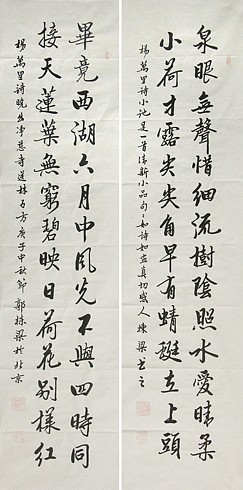 泉眼無聲惜細流樹陰照水愛晴柔
小荷才露尖尖角早有蜻蜓立上頭
楊萬里詩小池是一首清新小品句句如詩如畫真切感人棟梁書之
畢竟西湖六月中風光不與四時同
接天蓮葉無窮碧映日荷花別樣紅
楊萬里詩曉出净慈寺送林子方庚子中秋節郭棟梁於北京